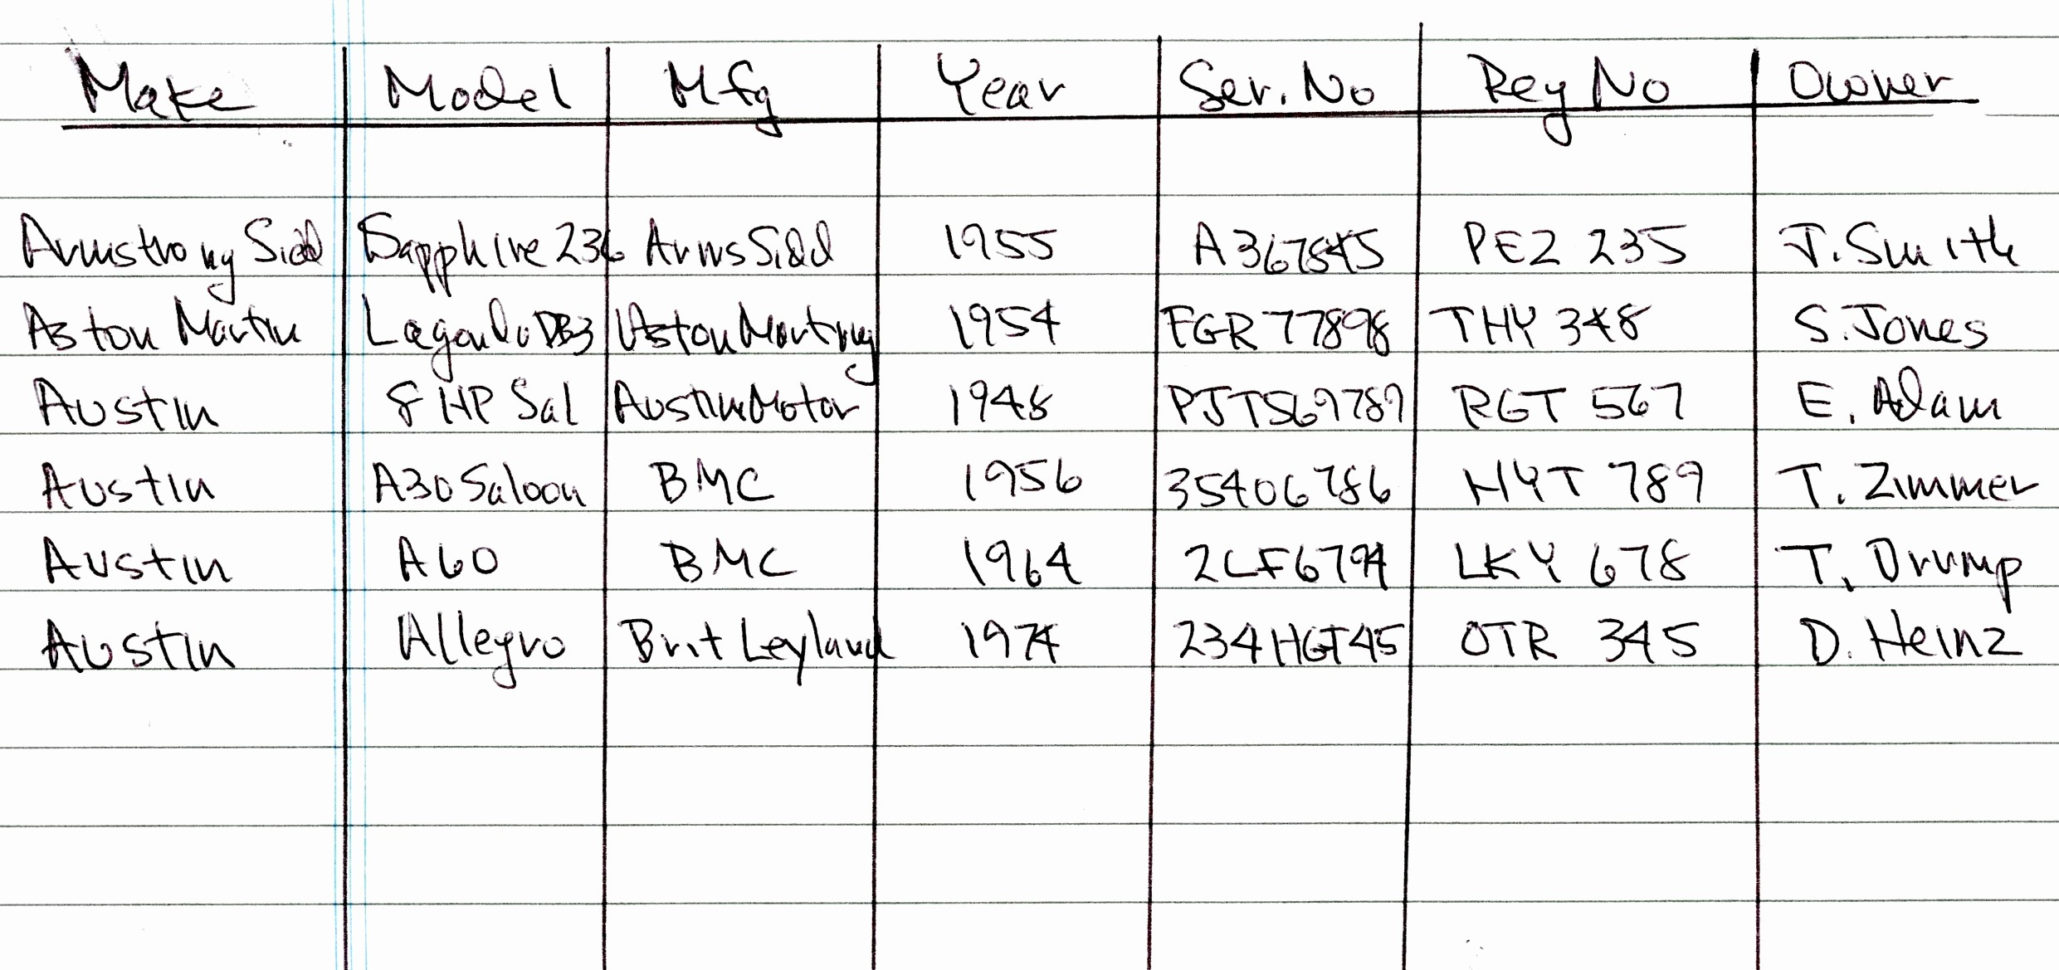 Make Model Mfg Year Ser. No Reg No Owner
Armstrong Sidd Sapphire 236 ArmsSidd 1955 A367545 PEZ 235 J. Smith
Aston Martin Lagonda DB3 Aston Marting 1954 FGR77898 THY 348 S. Jones
Austin 8 HP Sal Austin Motor 1948 PJT569789 RGT 567 E. Adam
Austin A30 Saloon BMC 1956 35406786 HYT 789 T. Zimmer
Austin A60 BMC 1964 2LF6794 LKY 678 T. Drump
Austin Allegro Brit Leyland 1974 234HGT45 OTR 345 D. Heinz